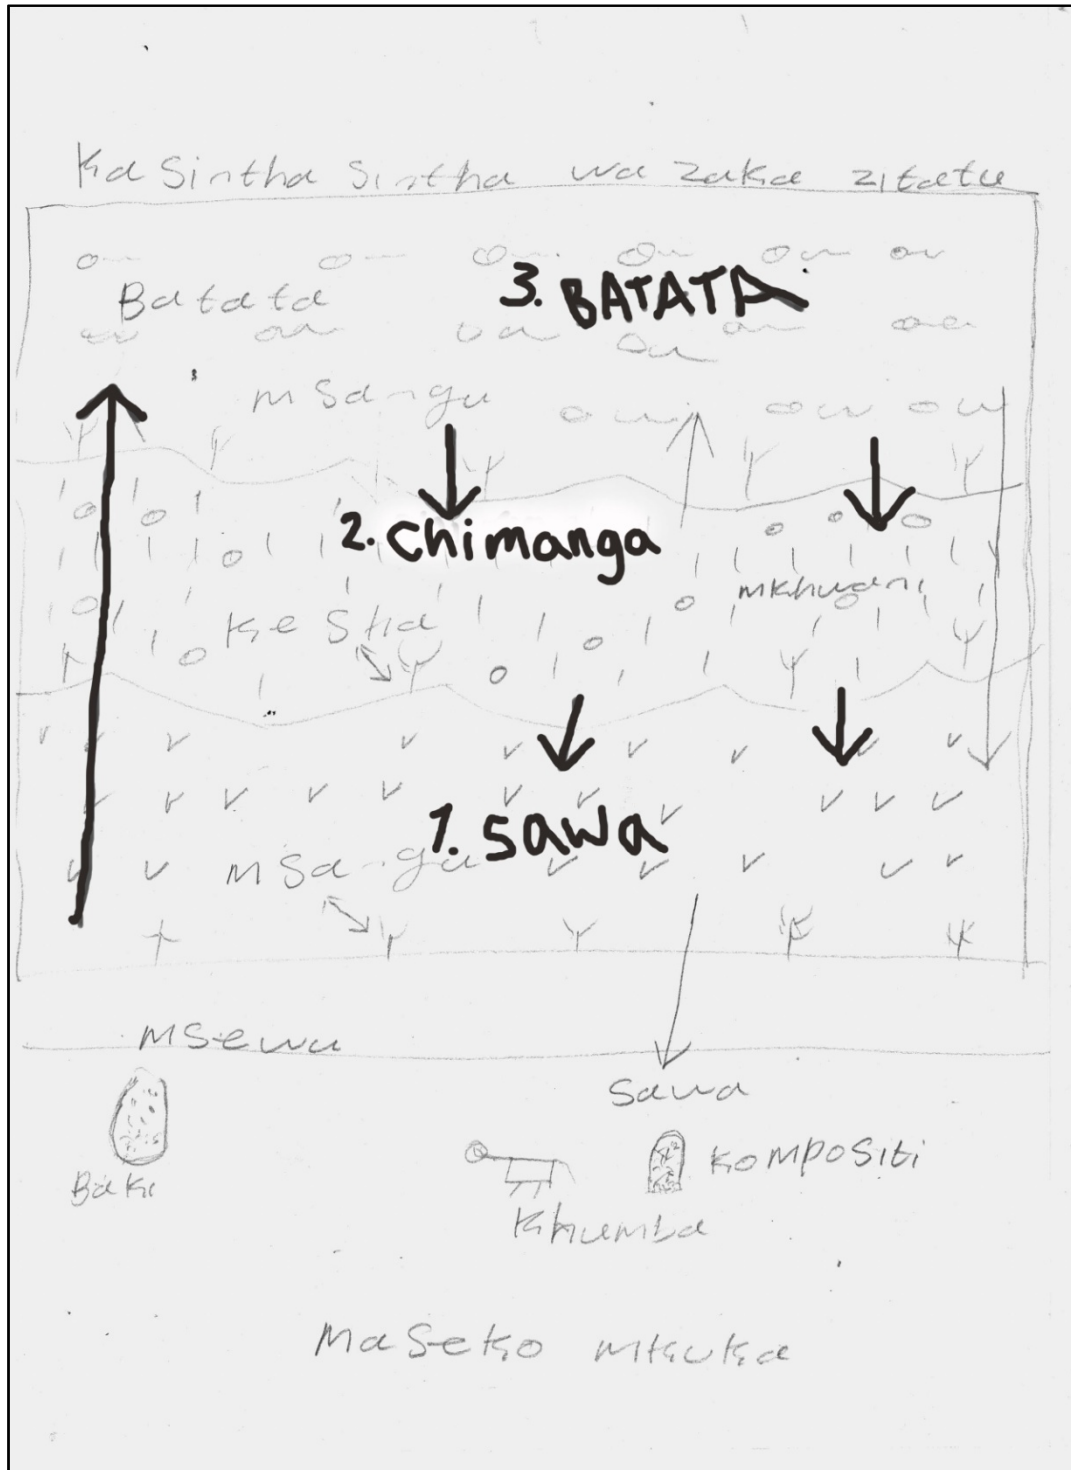 Kasinthasintha wa zaka zitatu
3. BATATA
Batata
msangu
2. Chimanga
mkhwani
Kesha
1. Sawa
msangu
msewu
Sawa
Baki
Kompositi
Khumba
Maseko mkuka